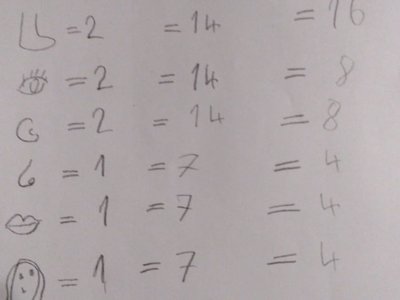 = 2 = 14 = 16
= 2 = 14 = 8
= 2 = 14 = 8
= 1 = 7 = 4
= 1 = 7 = 4
= 1 = 7 = 4